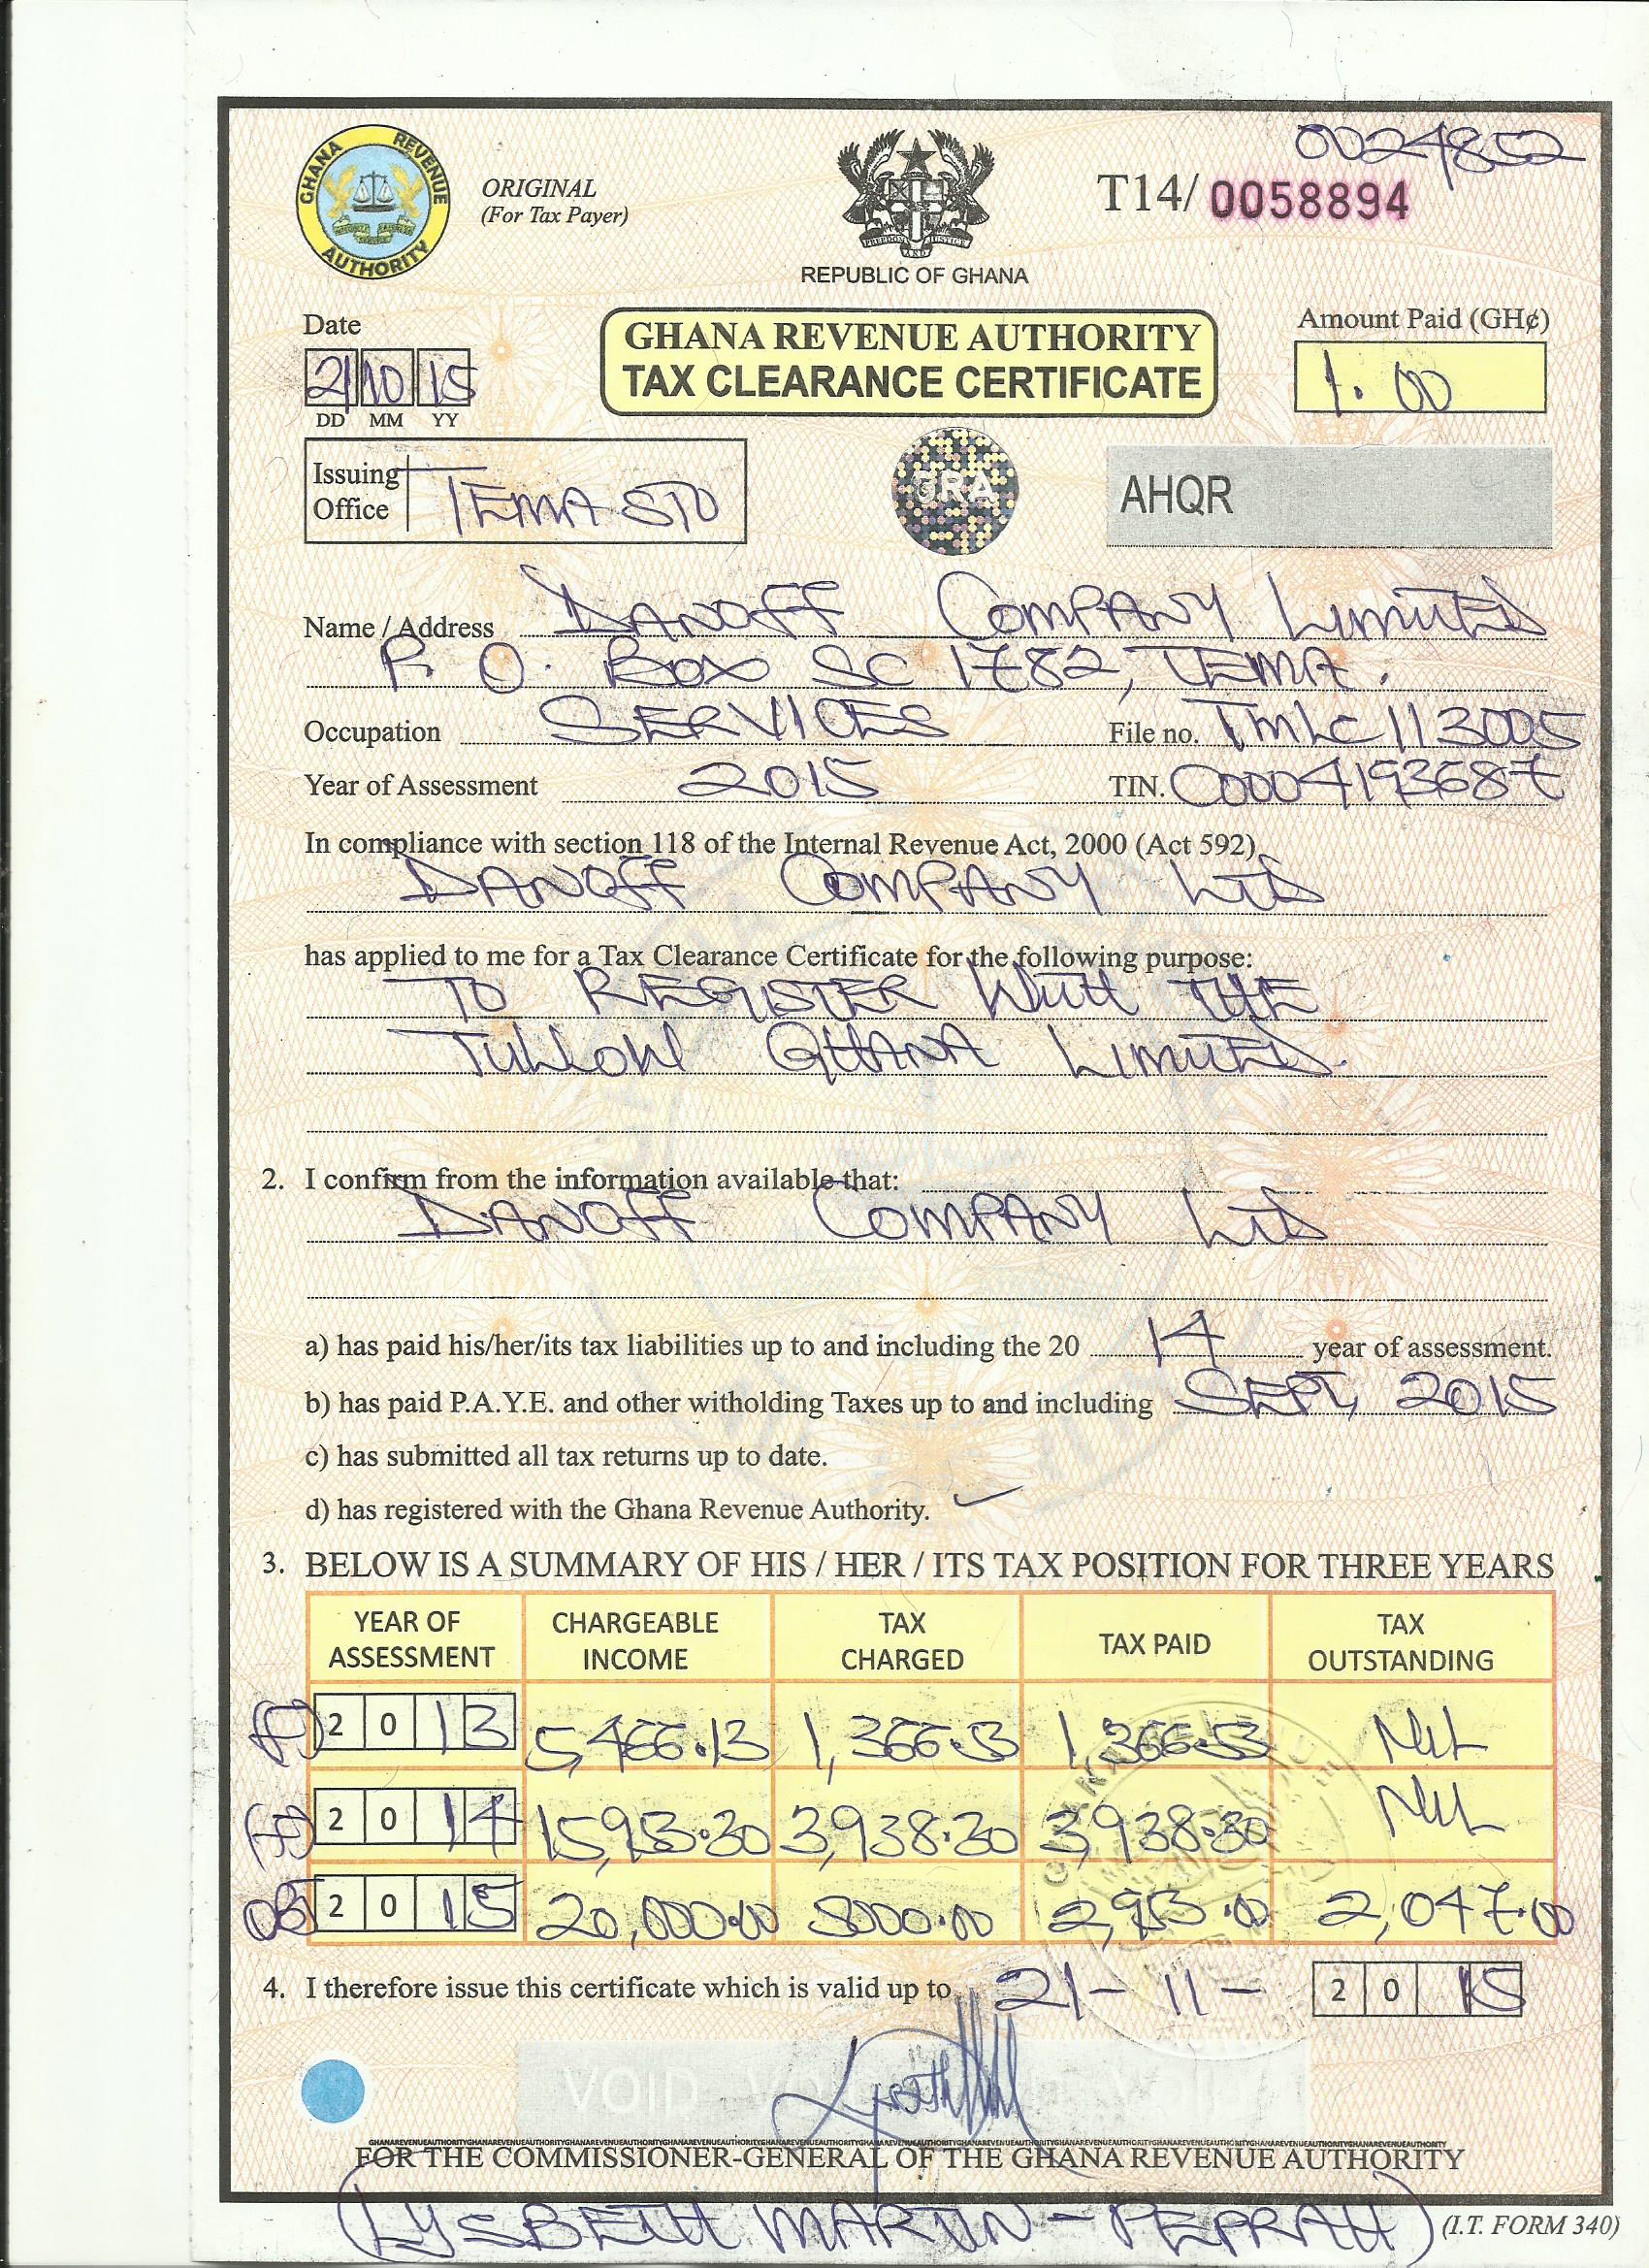 0024852
GHANA REVENUE AUTHORITY
ORIGINAL
(For Tax Payer)
FREEDOM AND JUSTICE
REPUBLIC OF GHANA
T14/ 0058894
Date
21 10 15
DD MM YY
GHANA REVENUE AUTHORITY
TAX CLEARANCE CERTIFICATE
Amount Paid (GH¢)
1.00
Issuing
Office TEMA STO
GRA
AHQR
Name / Address DANOFF COMPANY LIMITED
P. O. BOX SC 1782, TEMA.
Occupation SERVICES File no. TMLC113005
Year of Assessment 2015 TIN. C0004193687
In compliance with section 118 of the Internal Revenue Act, 2000 (Act 592)
DANOFF COMPANY LTD
has applied to me for a Tax Clearance Certificate for the following purpose:
TO REGISTER WITH THE
TULLOW GHANA LIMITED.
2. I confirm from the information available that:
DANOFF COMPANY LTD
a) has paid his/her/its tax liabilities up to and including the 20 14 year of assessment.
b) has paid P.A.Y.E. and other witholding Taxes up to and including SEPT, 2015
c) has submitted all tax returns up to date.
d) has registered with the Ghana Revenue Authority.
3. BELOW IS A SUMMARY OF HIS / HER / ITS TAX POSITION FOR THREE YEARS
YEAR OF ASSESSMENT CHARGEABLE INCOME TAX CHARGED TAX PAID TAX OUTSTANDING
2013 5,466.13 1,366.53 1,366.53 NIL
2014 3,938.30 3,938.30 NIL
2015 20,000.00 5000.00 2,953.00 2,047.00
4. I therefore issue this certificate which is valid up to 21-11- 2015
VOID
FOR THE COMMISSIONER-GENERAL OF THE GHANA REVENUE AUTHORITY
(LYSBETH MARTIN-PEPRAH)
(I.T. FORM 340)